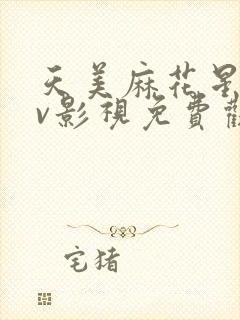 天美麻花星
v影視免費觀
宅猪